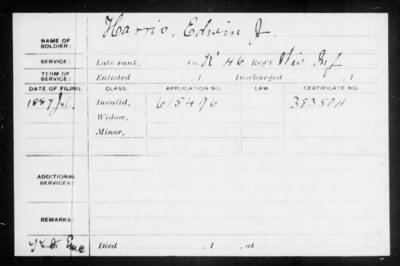 NAME OF SOLDIER: Harris, Edwin J.
SERVICE: Late rank, in K 46 Reg't Wis Inf
TERM OF SERVICE: Enlisted , 1 Discharged , 1
DATE OF FILING. CLASS. APPLICATION NO. LAW. CERTIFICATE NO.
1887 Invalid, 615496 383504
Widow,
Minor,
ADDITIONAL SERVICES:
REMARKS:
Died , 1 , at